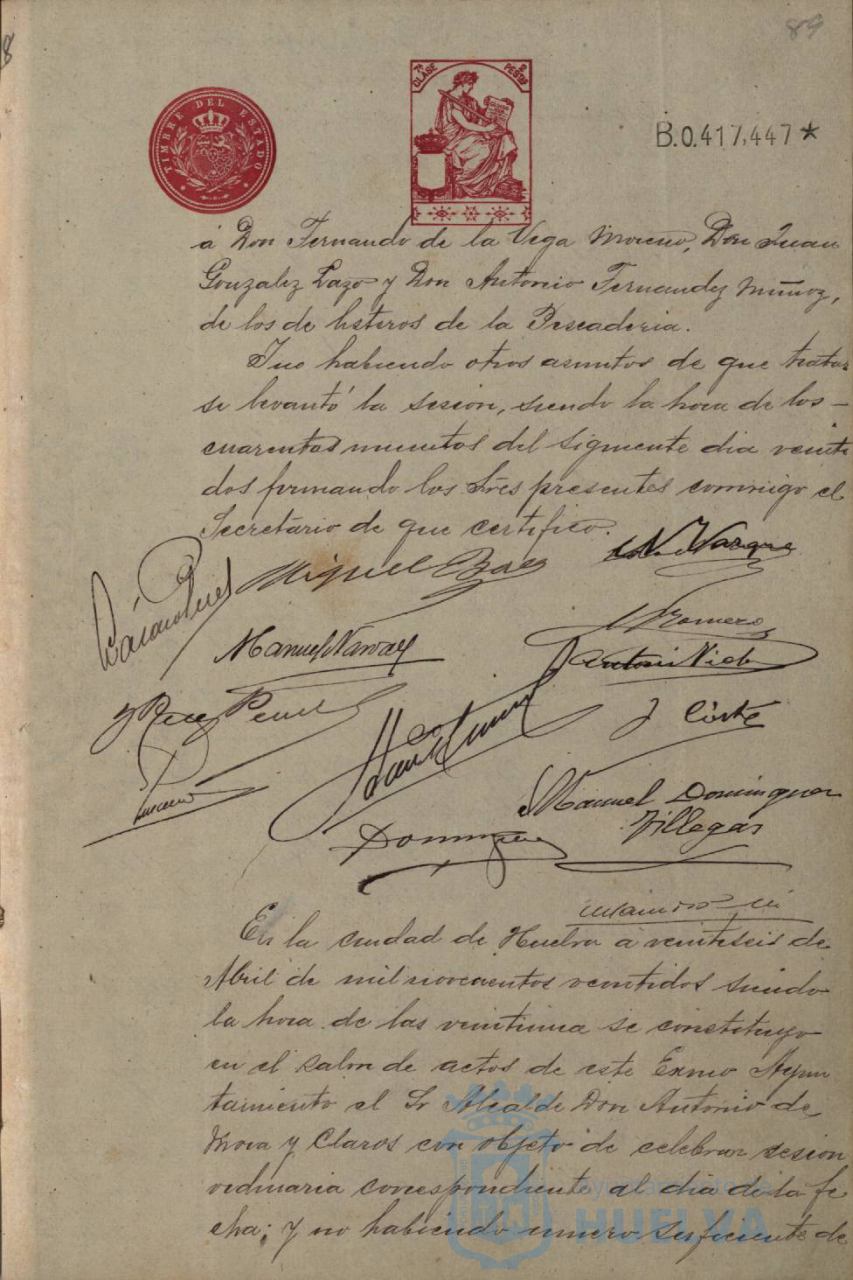 89
8
TIMBRE DEL ESTADO
7ª CLASE 2 PESTAS
B.0.417,447 *
á Don Fernando de la Vega Moreno, Don Juan
Gonzalez Lazo y Don Antonio Fernandez Muñoz,
de los de Esteros de la Pescaderia.
Y no habiendo otros asuntos de que tratar
se levantó la sesion, siendo la hora de los
cuarenta minutos del siguiente dia veinti
dos firmando los Sres presentes conmigo el
Secretario de que certifico.
Miguel Baez
Vazque
Manuel Narvaez
Romero
Antonio Nieto
J Corte
Manuel Dominguez
Villegas
Dominguez
En la ciudad de Huelva a veintiseis de
Abril de mil novecientos veintidos siendo
la hora de las veintiuna se constituyo
en el salon de actos de este Exmo Ayun
tamiento el Sr Alcalde Don Antonio de
Mora y Claros con objeto de celebrar sesion
ordinaria correspondiente al dia de la fe
cha; y no habiendo numero suficiente de
Ayuntamiento de
HUELVA